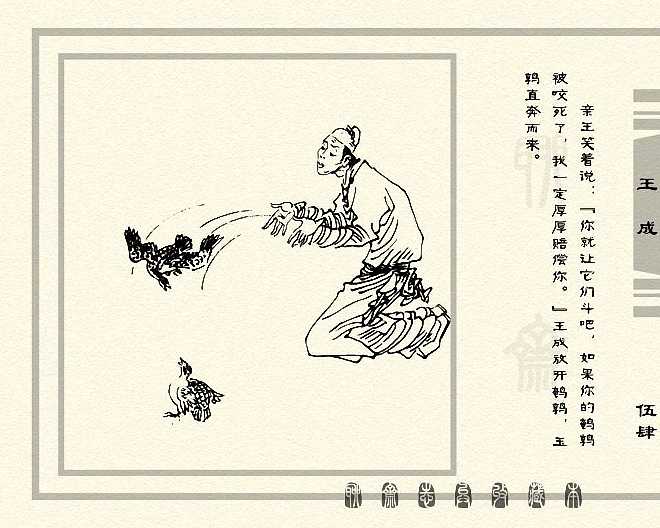 亲王笑着说：『你就让它们斗吧，如果你的鹌鹑
被咬死了，我一定厚厚赔偿你。』王成放开鹌鹑，玉
鹑直奔而来。
王成
伍肆